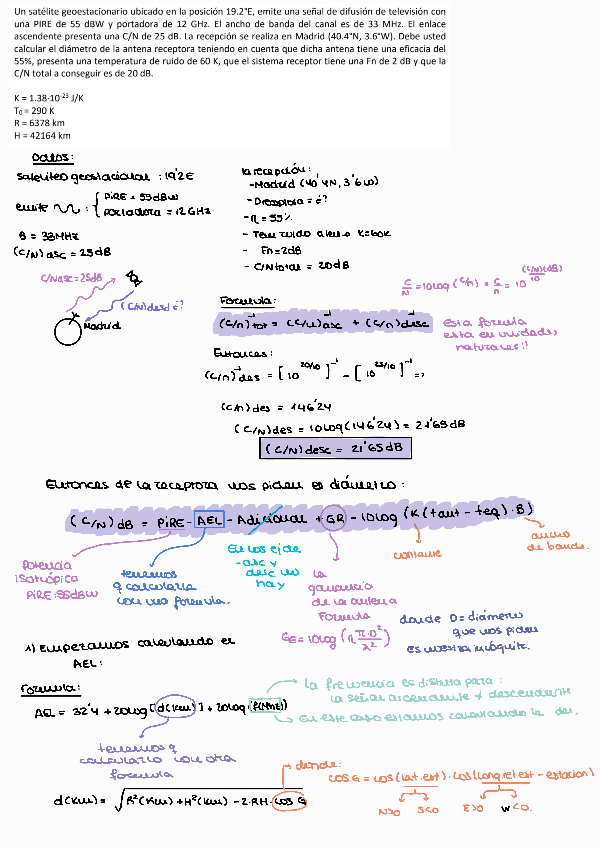 Un satélite geoestacionario ubicado en la posición 19.2°E, emite una señal de difusión de televisión con
una PIRE de 55 dBW y portadora de 12 GHz. El ancho de banda del canal es de 33 MHz. El enlace
ascendente presenta una C/N de 25 dB. La recepción se realiza en Madrid (40.4°N, 3.6°W). Debe usted
calcular el diámetro de la antena receptora teniendo en cuenta que dicha antena tiene una eficacia del
55%, presenta una temperatura de ruido de 60 K, que el sistema receptor tiene una Fn de 2 dB y que la
C/N total a conseguir es de 20 dB.
K = 1.38·10⁻²³ J/K
T₀ = 290 K
R = 6378 km
H = 42164 km
Datos:
satélite geoestacional : 19'2E
emite : { PIRE = 55dBW
portadora = 12GHz
B = 33MHz
(C/N) asc = 25dB
la recepción:
- Madrid (40'4N, 3'6W)
- Dreceptora = ¿?
- η = 55%
- Tem ruido K=60K
- Fn=2dB
- C/N total = 20dB
C/Nasc=25dB
(C/N)desd ¿?
Madrid
C/N = 10log (C/n) = C/n = 10^((C/N)(dB)/10)
Formula:
(C/n)⁻¹tot = (C/n)⁻¹asc + (C/n)⁻¹desc
Esta formula
esta en unidades
naturales!!
Entonces:
(C/n)⁻¹des = [10^(20/10)]⁻¹ - [10^(25/10)]⁻¹ =>
(C/n)des = 146'24
(C/N)des = 10log(146'24) = 21'65dB
(C/N)desc = 21'65dB
Entonces de la receptora nos piden el diámetro :
(C/N)dB = PIRE - AEL - Adicional + GR - 10log (K(tant - teq)·B)
Potencia
Isotrópico
PIRE:55dBW
tenemos
q calcularla
con una formula.
En los ej de
-asc y
desc no
hay
la
ganancia
de la antena
Formula
GE=10log(η π·D²/λ²)
constante
ancho
de banda.
donde D=diámetro
que nos piden
es nuestra incógnita.
1) Empezamos calculando el
AEL:
Formula:
AEL = 32'4 + 20log[d(Km)] + 20log[f(MHz)]
la frecuencia es distinta para :
la señal ascendente ≠ descendente
En este caso estamos calculando la des.
tenemos q
calcularlo con otra
formula
d(Km) = √R²(Km)+H²(Km) - 2·RH·cos G
donde:
cosG = cos(lat.est)·cos(long.rel est - estacion)
N>0 S<0 E>0 W<0.